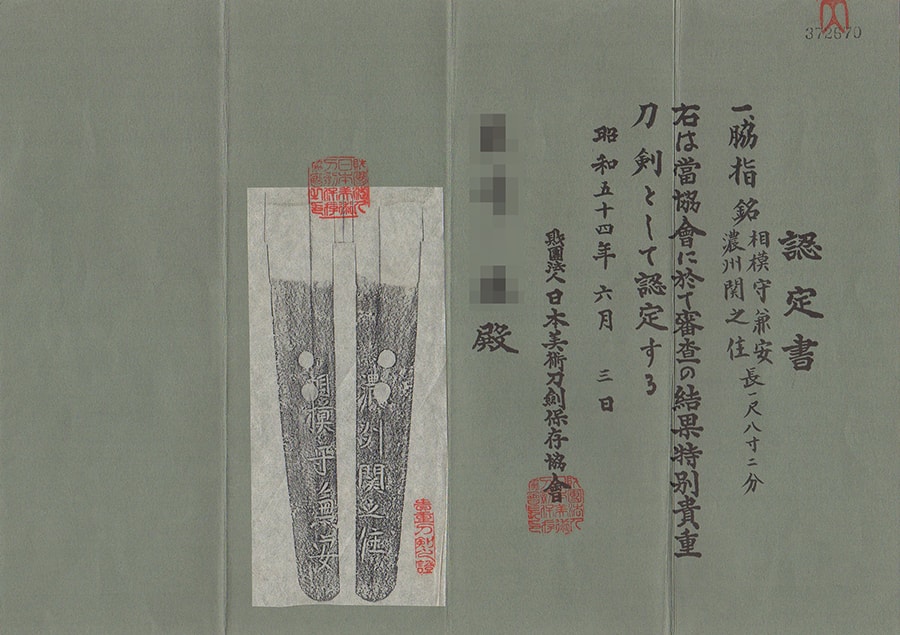 372670
認定書
一、脇指 銘 相模守兼安
濃州関之住 長一尺八寸二分
右は當協會に於て審査の結果特別貴重
刀剣として認定する
昭和五十四年六月三日
財團法人日本美術刀剣保存協會
殿
濃州関之住
相模守兼安
貴重刀剣之證